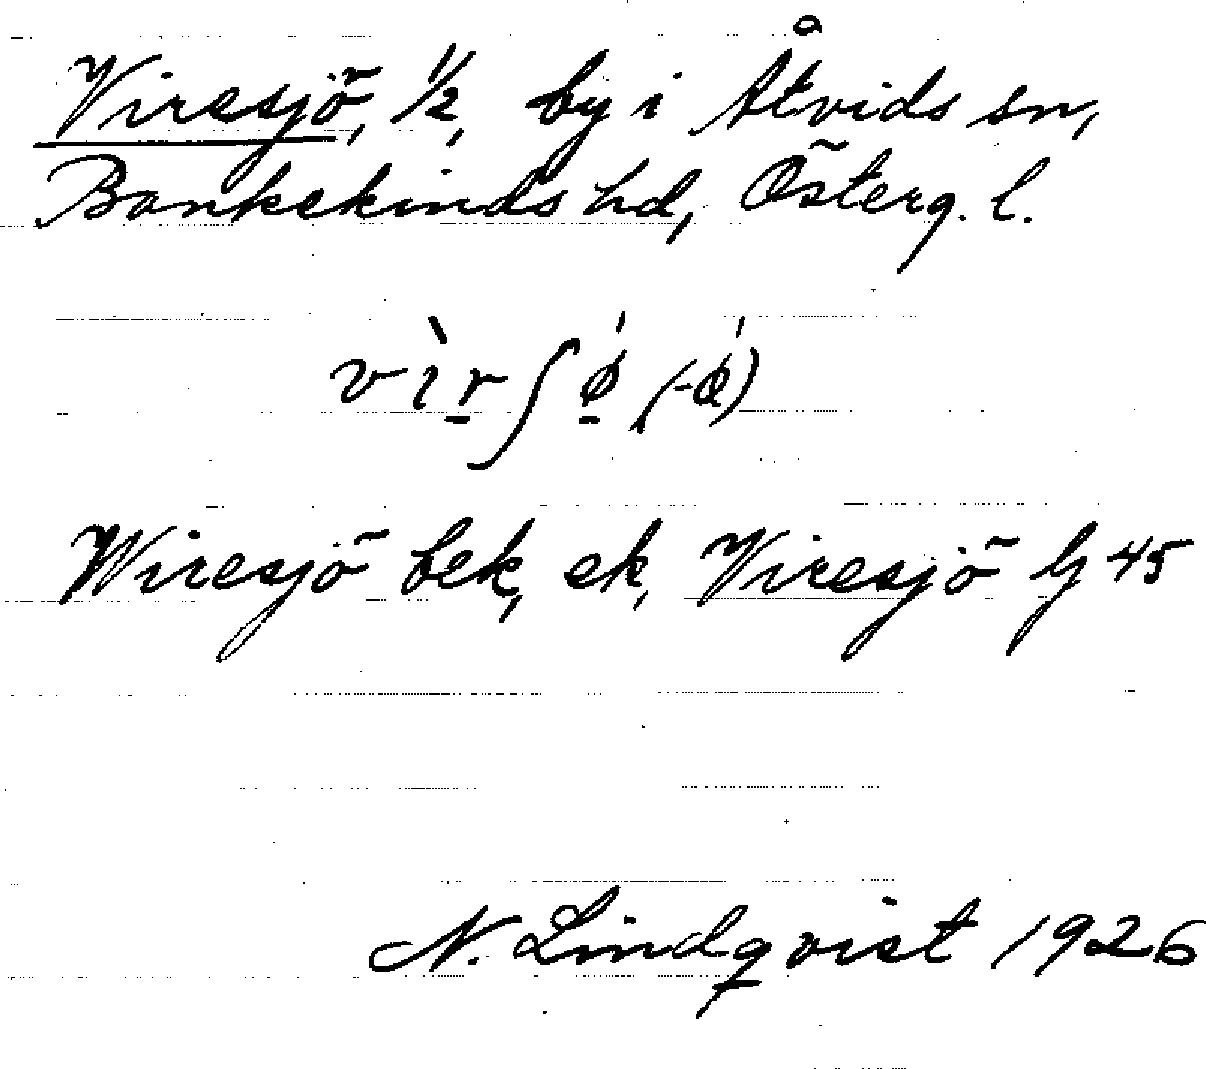 Viresjö, 1/2, by i Åtvids sn,
Bankekinds hd, Österg. l.
vìrʃǿ (-ǿ)
Wiresjö bek, ek, Viresjö Gj 45
N. Lindqvist 1926